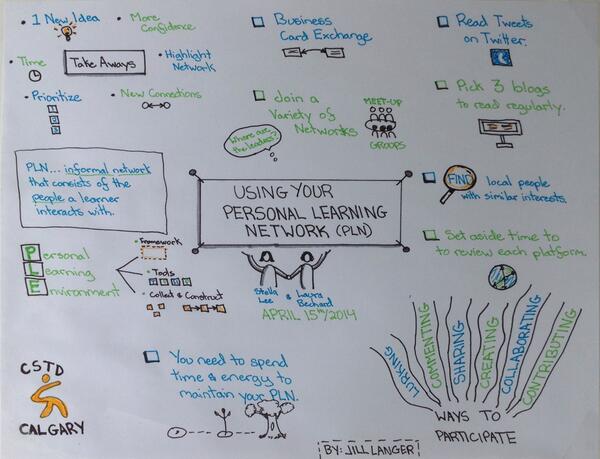 • 1 New Idea
• More
Confidence
• Time
Take Aways
• Highlight
Network
• Prioritize
1
2
3
• New Connections
Business
Card Exchange
Join a
Variety of
Networks
MEET-UP
GROUPS
Where are
the leaders?
Read Tweets
on Twitter.
Pick 3 blogs
to read regularly.
PLN... informal network
that consists of the
people a learner
interacts with.
USING YOUR
PERSONAL LEARNING
NETWORK (PLN)
Stella
Lee
&
Laura
Bechard
APRIL 15TH/2014
FIND local people
with similar interests.
Set aside time to
to review each platform.
Personal
Learning
Environment
• Framework
• Tools
• Collect & Construct
CSTD
CALGARY
You need to spend
time & energy to
maintain your PLN.
LURKING
COMMENTING
SHARING
CREATING
COLLABORATING
CONTRIBUTING
WAYS TO
PARTICIPATE
BY: JILL LANGER